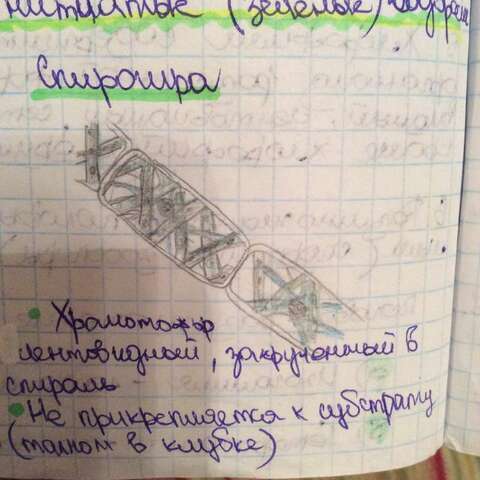 нитчатые (зелёные) водоросли
Спирогира
• Хроматофор
лентовидный, закрученный в
спираль -
• Не прикрепляется к субстрату
(талном в клубке)